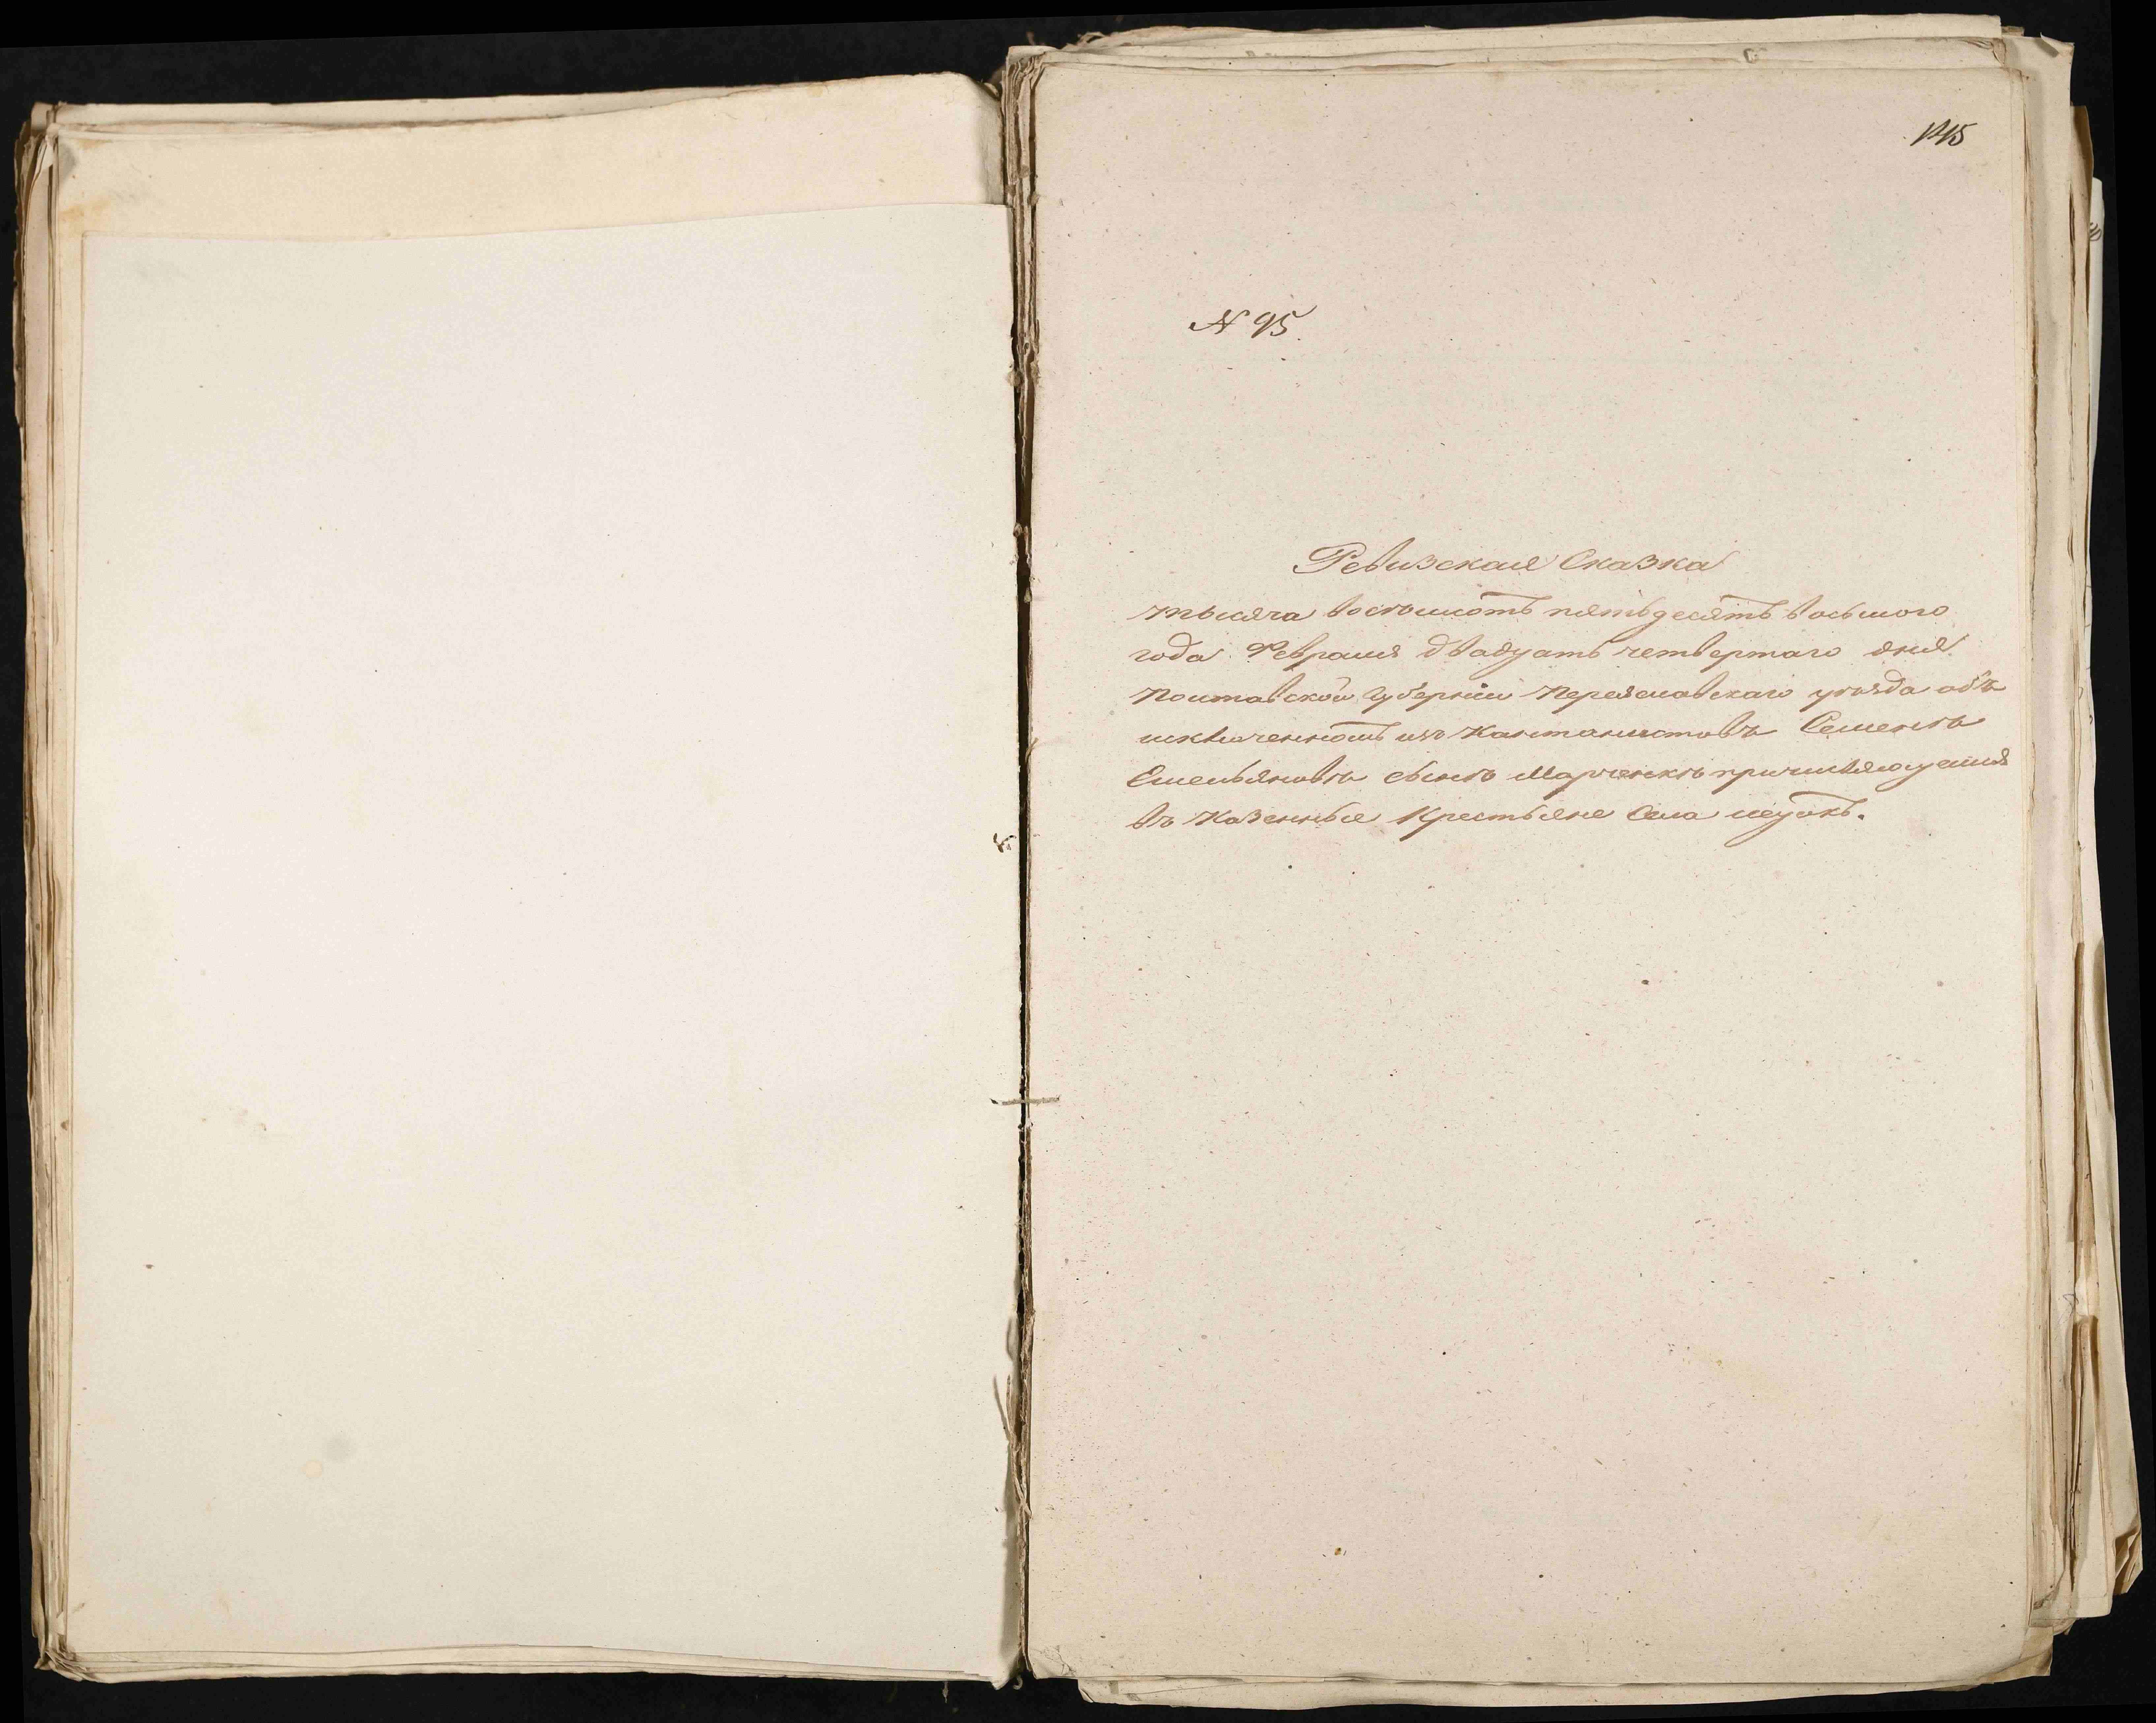 1415
N 95.
Ревизская Сказка
тысяча восьмсотъ пятьдесятъ восьмого
года Февраля двадцать четвертаго дня
Полтавской Губерніи Переяславскаго уѣзда объ
изключенномъ изъ Кантанистовъ Семенѣ
Емельяновѣ сынѣ Марченкѣ причисляющемся
въ Казенные Крестьяне Села